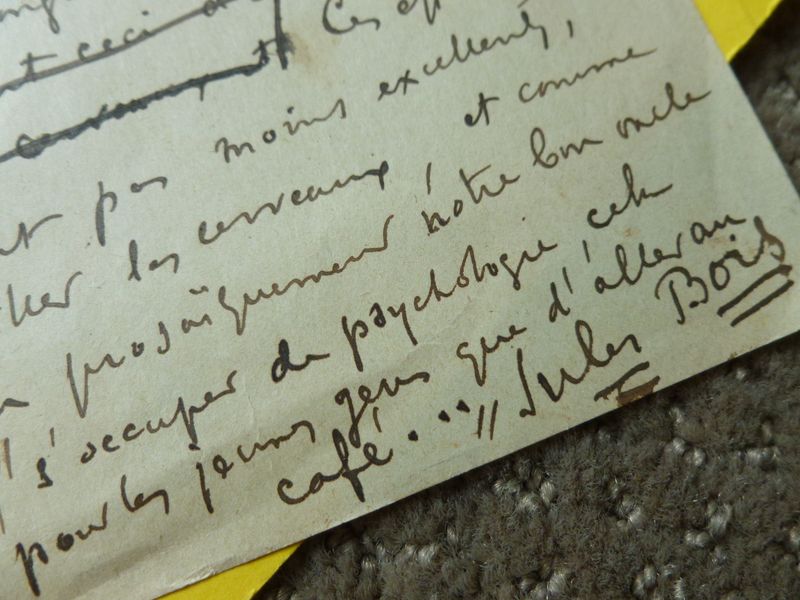 nt ceci
Ces
cerveaux
nt pas moins excellents,
les cerveaux, et comme
prosaïquement notre bon oncle
s'occuper de psychologie, cela
pour les jeunes gens que d'aller au
café..." Jules Bois